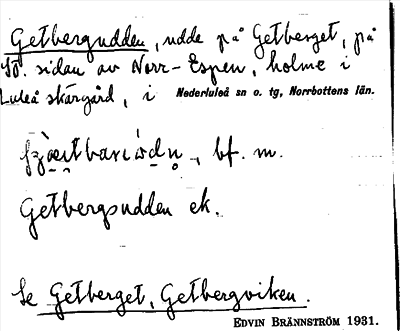 Getbergudden, udde på Getberget, på
sidan av Norr-Espen, holme i
Luleå skärgård, i Nederluleå sn o. tg, Norrbottens län.
bf. m.
Getbergsudden ek.
Se Getberget, Getbergviken.
EDVIN BRÄNNSTRÖM 1931.